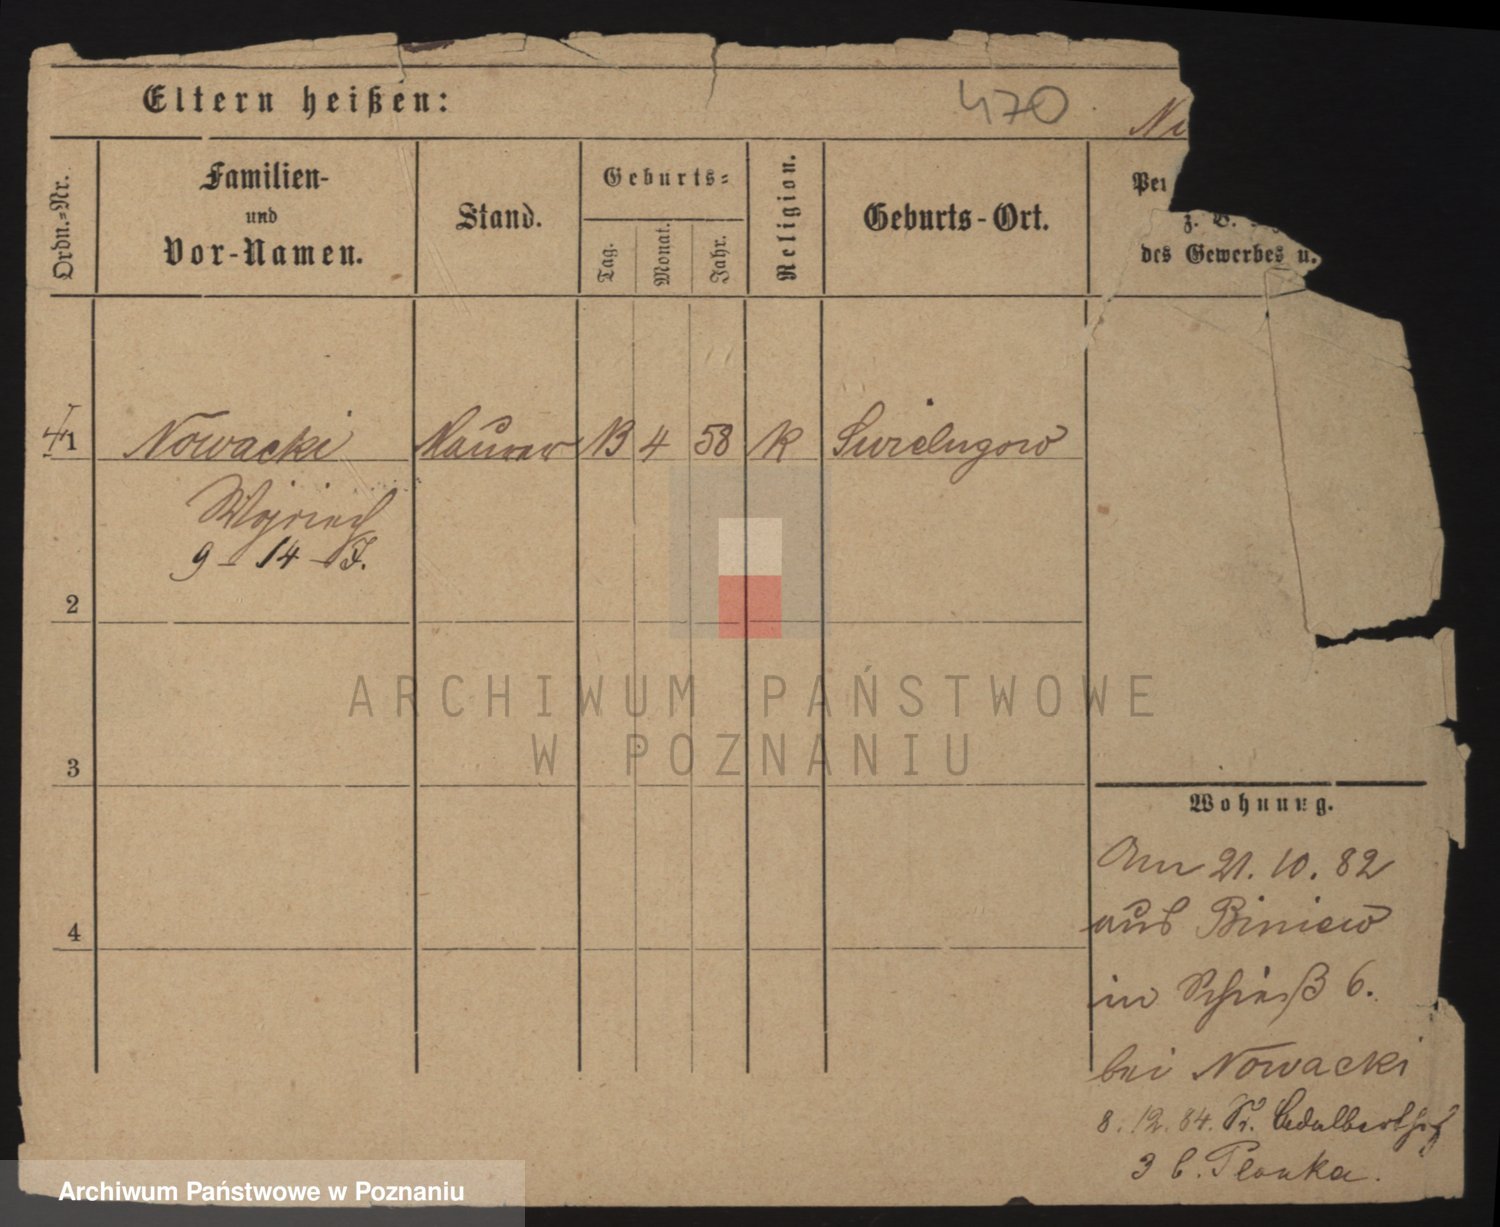 Eltern heißen:
470
Ordn.=Nr.
Familien-
und
Vor-Namen.
Stand.
Geburts=
Tag.
Monat.
Jahr.
Religion.
Geburts-Ort.
z. B.
des Gewerbes u.
1 Nowacki Maurer 13 4 58 K Swielugow
Wojciech
9 - 14 - J.
2
3
4
Wohnung.
Am 21. 10. 82
aus Biniew
in Schieß 6.
bei Nowacki
8. 12. 84. Kl. Adalbertstr
3 b. Plonka.
ARCHIWUM PAŃSTWOWE
W POZNANIU
Archiwum Państwowe w Poznaniu